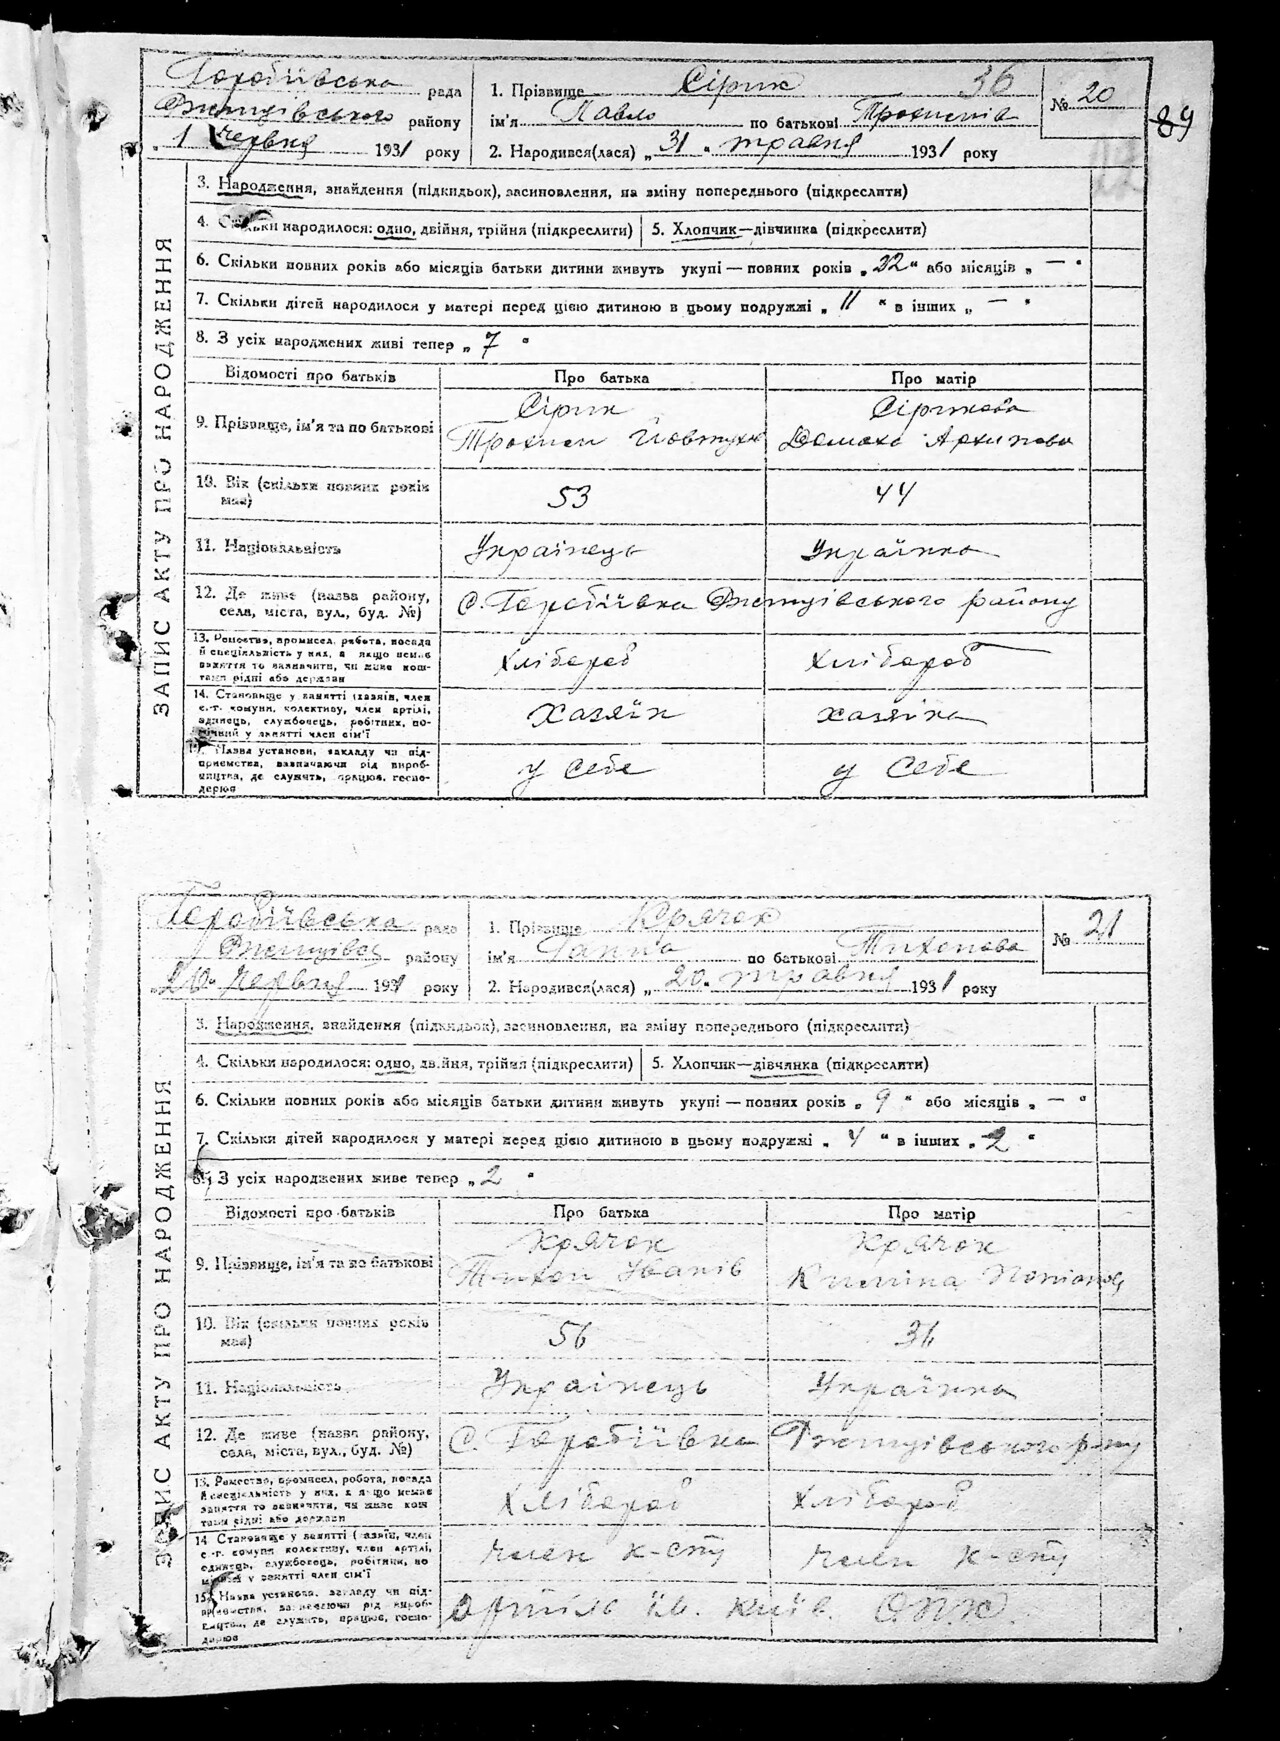 Горобіївська рада
Джетцівського району
„ 1 Червня 1931 року
1. Прізвище Сірик 36
ім'я Павло по батькові Трохимів
2. Народився(лася) „ 31 " травня 1931 року
№ 20
89
ЗАПИС АКТУ ПРО НАРОДЖЕННЯ
3. Народження, знайдення (підкидьок), засиновлення, на зміну попереднього (підкреслити)
4. Скільки народилося: одно, двійня, трійня (підкреслити) 5. Хлопчик—дівчинка (підкреслити)
6. Скільки повних років або місяців батьки дитини живуть укупі — повних років „ 22 " або місяців „ — "
7. Скільки дітей народилося у матері перед цією дитиною в цьому подружжі „ 11 " в інших „ — "
8. З усіх народжених живі тепер „ 7 "
Відомості про батьків Про батька Про матір
9. Прізвище, ім'я та по батькові
Сірик Сірикова
Трохим Йовтухів Домаха Архипова
10. Вік (скільки повних років має) 53 44
11. Національність Українець Українка
12. Де живе (назва району, села, міста, вул., буд. №) с. Горобіївка Джетцівського району
13. Ремество, промисел, робота, посада й спеціяльність у них, а якщо немає заняття то зазначити, чи живе коштами рідні або держави Хлібороб Хлібороб
14. Становище у занятті (хазяїн, член с.-г. комуни, колективу, член артілі, одинець, службовець, робітник, помічний у занятті член сім'ї Хазяїн хазяїна
15. Назва установи, закладу чи підприємства, зазначаючи рід виробництва, де служить, працює, господарює у себе у себе
Горобіївська рада
Джетцівськ району
„ 20 " Червня 1931 року
1. Прізвище Крячок
ім'я Ганна по батькові Тихонова
2. Народився(лася) „ 20 " травня 1931 року
№ 21
ЗАПИС АКТУ ПРО НАРОДЖЕННЯ
3. Народження, знайдення (підкидьок), засиновлення, на зміну попереднього (підкреслити)
4. Скільки народилося: одно, двійня, трійня (підкреслити) 5. Хлопчик—дівчинка (підкреслити)
6. Скільки повних років або місяців батьки дитини живуть укупі — повних років „ 9 " або місяців „ — "
7. Скільки дітей народилося у матері перед цією дитиною в цьому подружжі „ 4 " в інших „ 2 "
8. З усіх народжених живе тепер „ 2 "
Відомості про батьків Про батька Про матір
9. Прізвище, ім'я та по батькові
Крячок Крячок
Тихон Іванів
10. Вік (скільки повних років має) 56 36
11. Національність Українець Українка
12. Де живе (назва району, села, міста, вул., буд. №) с. Горобіївка Джетцівського р-ну
13. Ремество, промисел, робота, посада й спеціяльність у них, а якщо немає заняття то зазначити, чи живе коштами рідні або держави Хлібороб Хлібороб
14. Становище у занятті (хазяїн, член с.-г. комуни, колективу, член артілі, одинець, службовець, робітник, помічний у занятті член сім'ї член к-сту член к-сту
15. Назва установи, закладу чи підприємства, зазначаючи рід виробництва, де служить, працює, господарює артіль їм. Київ ОПК